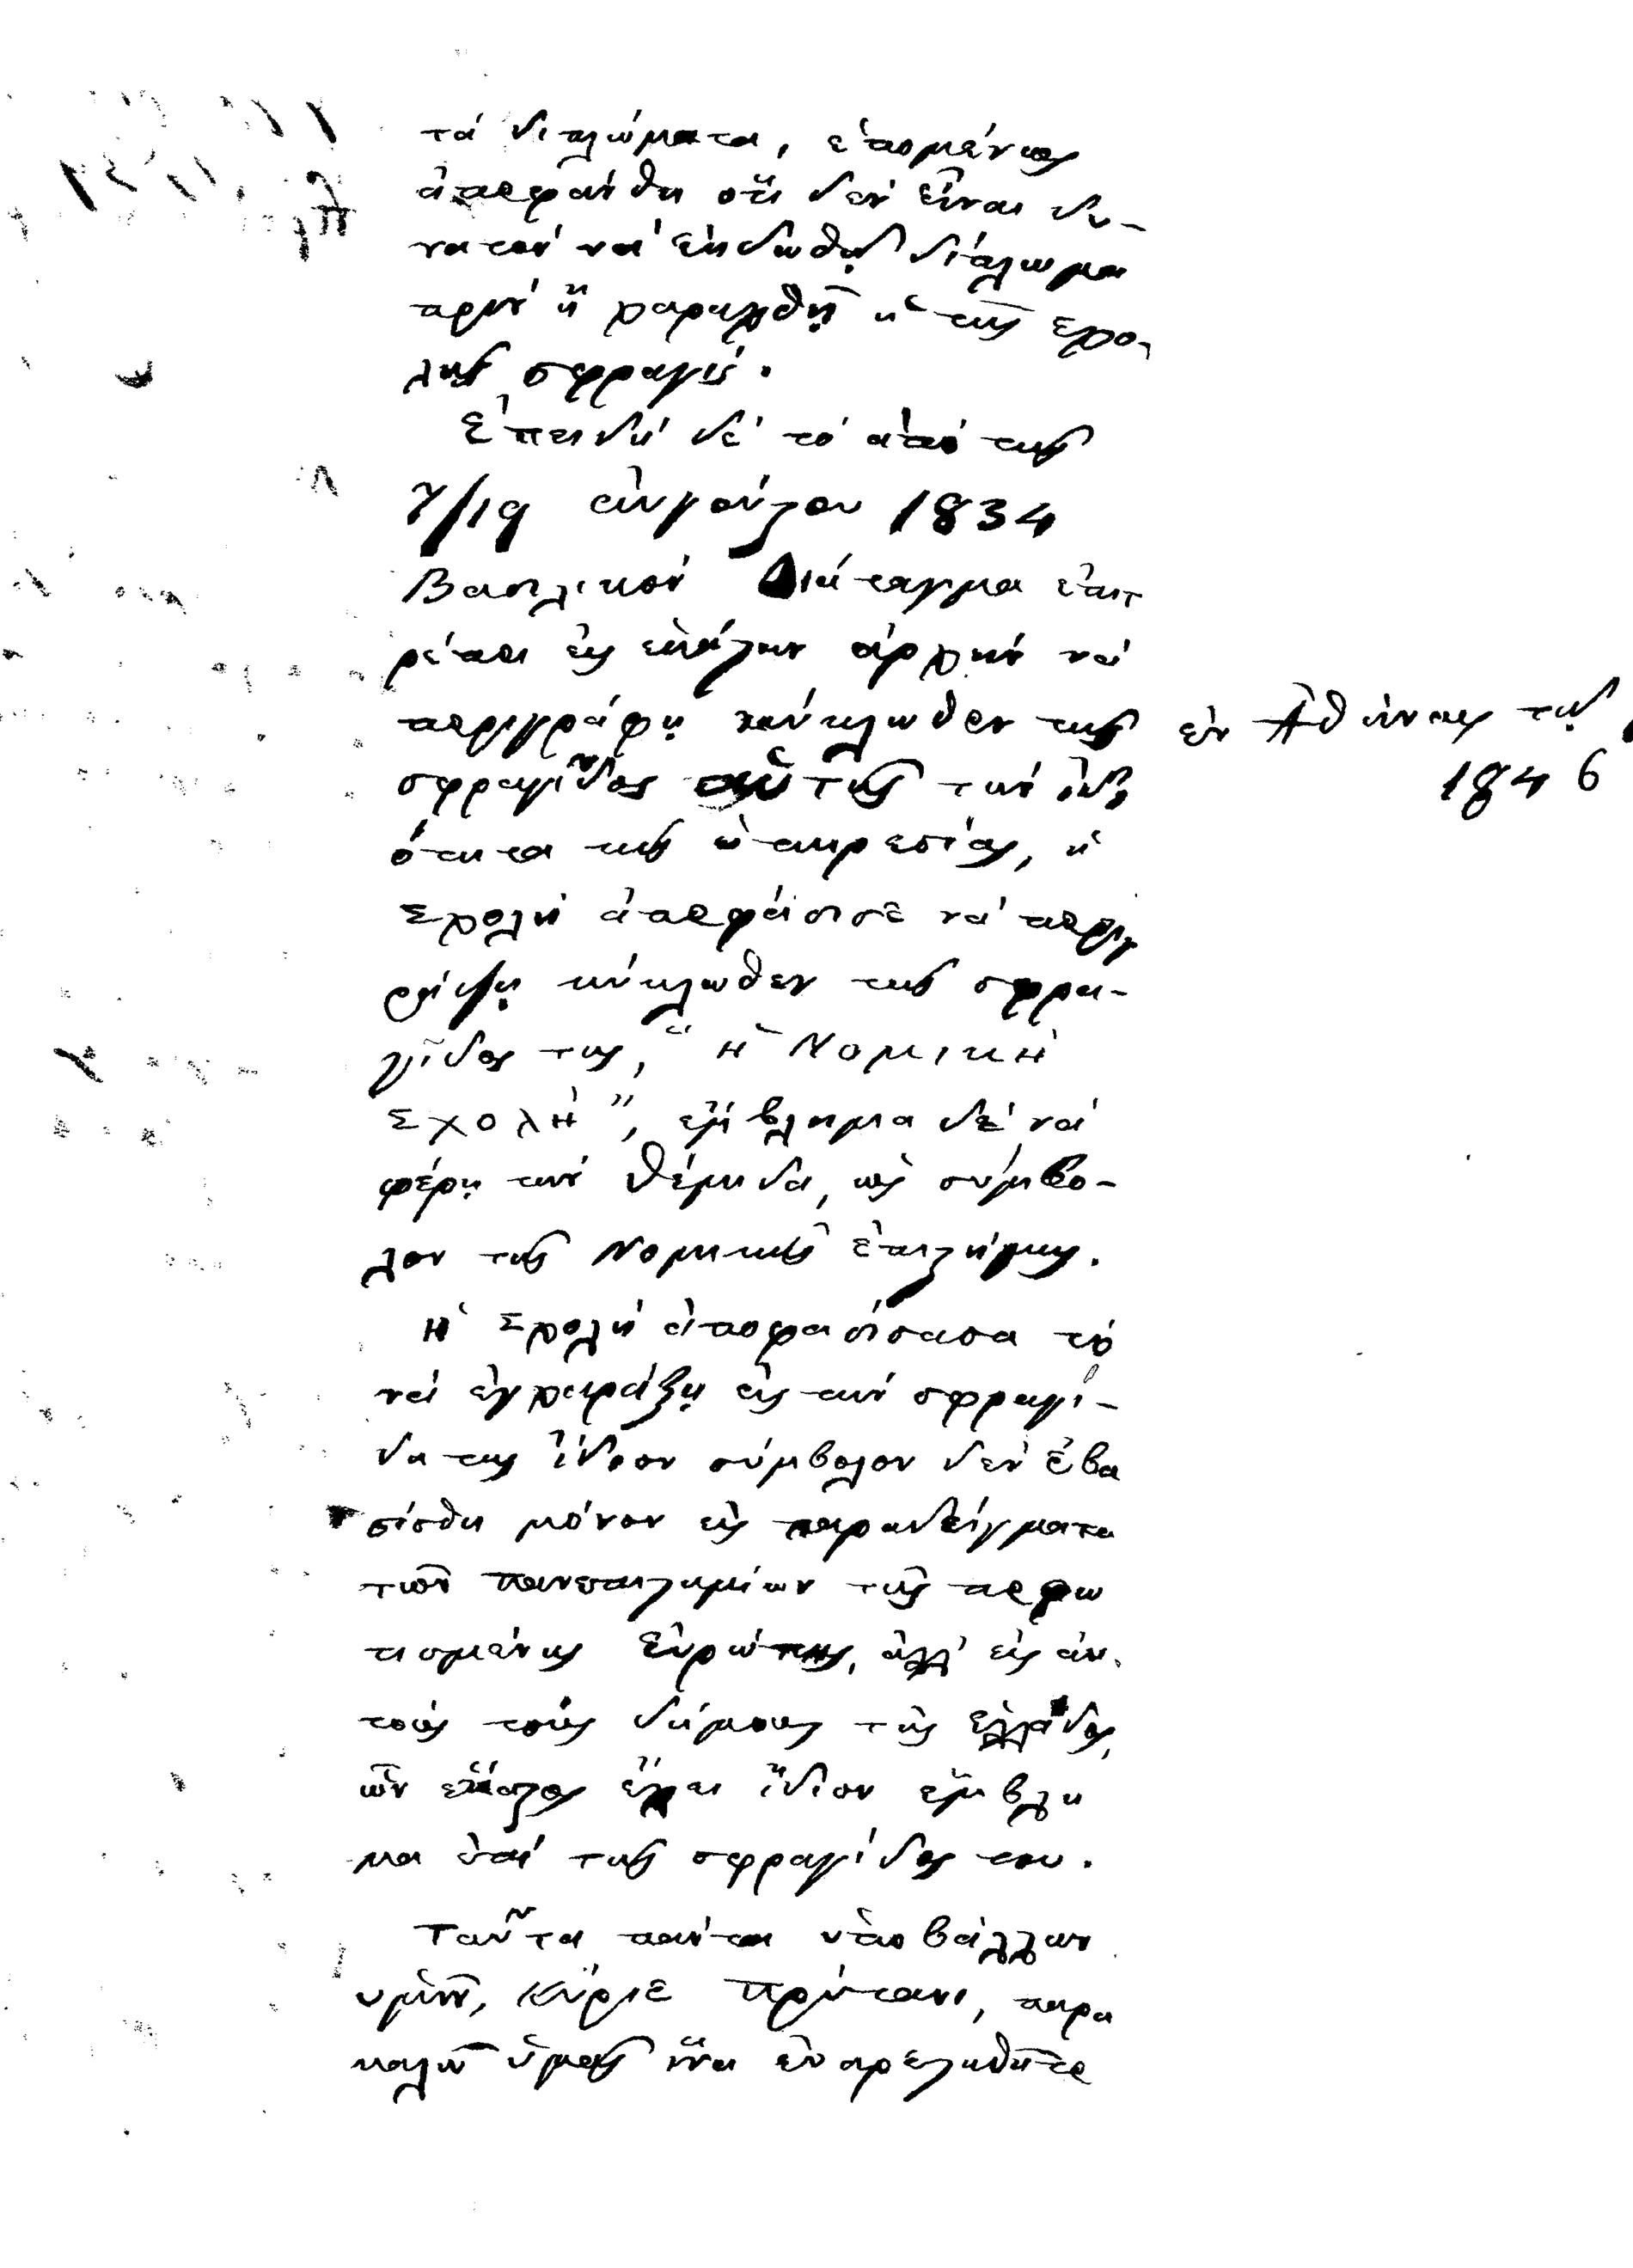 τὰ διπλώματα, ἑπομένως
ἀπεφάνθη ὅτι δὲν εἶναι δυ-
νατὸν νὰ ἐκδωθῇ δίπλωμα
πρὶν ἢ χαραχθῇ ἡ τῆς σχο-
λῆς σφραγίς.
Ἐπειδὴ δὲ τὸ ἀπὸ τῆς
7/19 αὐγούστου 1834
Βασιλικὸν Διάταγμα ἐπιτ
ρέπει εἰς ἑκάστην ἀρχὴν νὰ
περιγράφῃ κύκλωθεν τῆς
σφραγῖδος αὐτῆς τὴν ἰδι
ότητα τῆς ὑπηρεσίας, ἡ
Σχολὴ ἀπεφάσισε νὰ περιγ
ράψῃ κύκλωθεν τῆς σφρα-
γῖδος της, "Η Νομικὴ
Σχολὴ", ἔμβλημα δὲ νὰ
φέρῃ τὴν Θέμιδα, ὡς σύμβο-
λον τῆς Νομικῆς ἐπιστήμης.
Ἡ Σχολὴ ἀποφασίσασα τὸ
νὰ ἐγχαράξῃ εἰς τὴν σφραγί-
δα της ἴδιον σύμβολον δὲν ἐβα
σίσθη μόνον εἰς παραδείγματα
τῶν πανεπιστημίων τῆς πεφω
τισμένης Εὐρώπης, ἀλλ' εἰς αὐ-
τοὺς τοὺς δήμους τῆς Ἑλλάδος,
ὧν ἕκαστος ἔχει ἴδιον ἔμβλη
μα ἐπὶ τῆς σφραγίδος του.
Ταῦτα πάντα ὑποβάλλων
ὑμῖν, Κύριε Πρύτανι, παρα
καλῶ ὑμᾶς ἵνα εὐαρεστηθῆτε
ἐν Ἀθήναις τῇ
1846